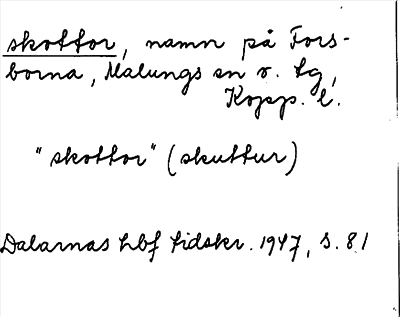 skottor, namn på Fors-
borna, Malungs sn o. tg,
Kopp. l.
"skottor" (skuttur)
Dalarnas hbf tidskr. 1947, s. 81